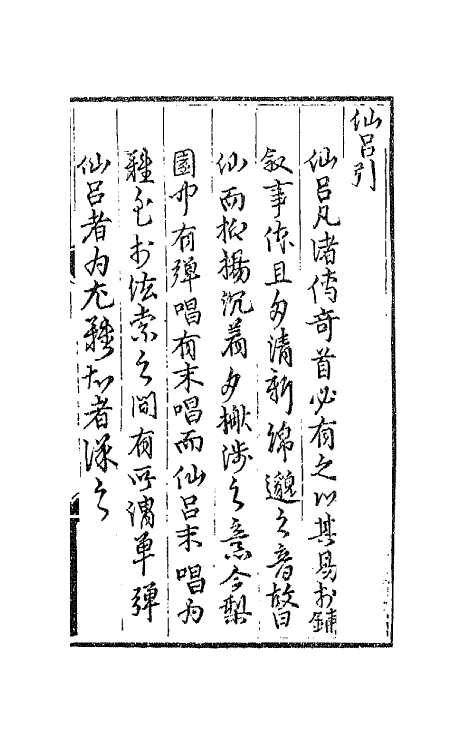 仙呂引
仙呂凡諸傳奇首必有之以其易於鋪
敘事保且多清新綿邈之音故曰
仙而抑揚沉着多撇涉之意今梨
園中有彈唱有末唱而仙呂末唱為
難至於絃索之間有所謂單彈
仙呂者為尤難知者深之